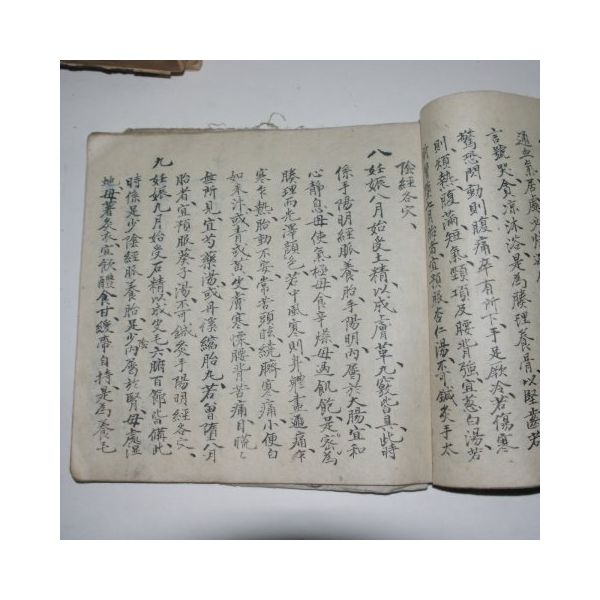 通血氣居處必
言號哭貪涼沐浴是爲腠理養骨以堅齒若
驚恐悶動則腹痛卒有所下手足厥冷若傷寒
則煩熱腹滿短氣頸項及腰背強宜葱白湯若
月胎者宜預服杏仁湯不可鍼灸手太
陰經各穴
八 妊娠八月始受土精以成膚革九竅皆具此時
係手陽明經脈養胎手陽明內屬於大腸宜和
心靜息母使氣極母食辛燥母過飢飽是密爲
腠理而光澤顔色若中風寒則身體盡通痛乍
寒乍熱胎動不安常苦頭眩繞臍寒痛小便白
如米汁或青或黃生膚寒慄腰背苦痛目䀮々
無所見宜芍藥湯或丹溪縮胎丸若曾墮八月
胎者宜預服葵子湯不可鍼灸手陽明經各穴
九 妊娠九月始受石精以成皮毛六腑百節皆備此
時係足少陰經脈養胎足少陰內屬於腎母處濕
地母著炙衣宜飲醴食甘緩帶自持是爲養毛